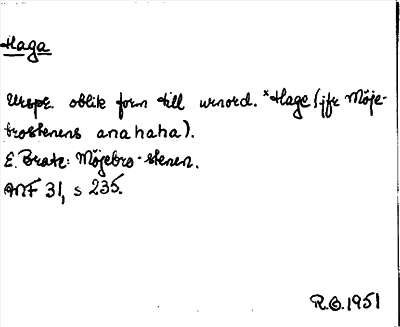 Haga
Urspr. oblik form till urnord. *Hage (jfr Möje-
brostenens anahaha).
E. Brate: Möjebro-stenen.
ANF 31, s 235.
R.O. 1951